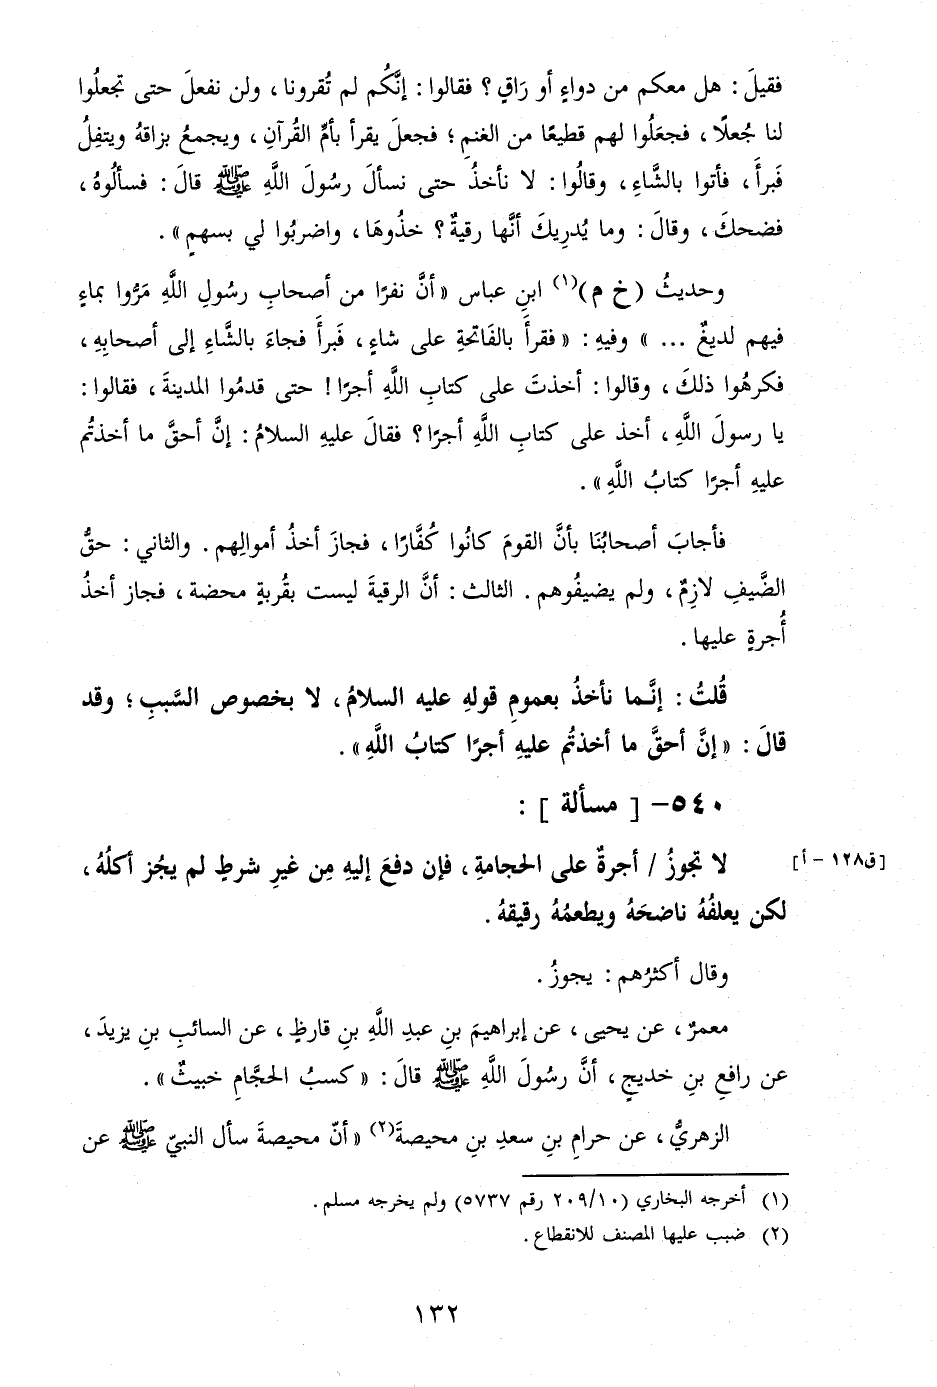 فقيلَ : هل معكم من دواءٍ أو رَاقٍ ؟ فقالوا : إنَّكُم لم تُقرونا ، ولن نفعلَ حتى تجعلُوا
لنا جُعلًا ، فجعَلُوا لهم قطيعًا من الغنمِ ؛ فجعلَ يقرأ بأمِّ القُرآنِ ، ويجمعُ بزاقهُ ويتفِلُ
فَبرأَ ، فأتوا بالشَّاءِ ، وقالُوا : لا نأخذُ حتى نسألَ رسُولَ اللَّهِ ﷺ قالَ : فسألُوهُ ،
فضحكَ ، وقالَ : وما يُدرِيكَ أنَّها رقيةٌ ؟ خذُوهَا ، واضربُوا لي بسهمٍ » .
وحديثُ ( خ م )(١) ابنِ عباس « أنَّ نفرًا من أصحابِ رسُولِ اللَّهِ مَرُّوا بماءٍ
فيهم لديغٌ ... » وفيهِ : « فقرأَ بالفَاتحةِ على شاءٍ ، فَبرأَ فجاءَ بالشَّاءِ إلى أصحابِهِ ،
فكرهُوا ذلكَ ، وقالوا : أخذتَ على كتابِ اللَّهِ أجرًا ! حتى قدمُوا المدينةَ ، فقالوا :
يا رسولَ اللَّهِ ، أخذ على كتابِ اللَّهِ أجرًا ؟ فقالَ عليهِ السلامُ : إنَّ أحقَّ ما أخذتُم
عليهِ أجرًا كتابُ اللَّهِ » .
فأجابَ أصحابُنَا بأنَّ القومَ كانُوا كُفَّارًا ، فجازَ أخذُ أموالِهم . والثاني : حقُّ
الضَّيفِ لازِمٌ ، ولم يضيفُوهم . الثالث : أنَّ الرقيةَ ليست بقُربةٍ محضة ، فجاز أخذُ
أُجرةٍ عليها .
قُلتُ : إنَّـما نأخذُ بعمومِ قولهِ عليه السلامُ ، لا بخصوص السَّببِ ؛ وقد
قالَ : « إنَّ أحقَّ ما أخذتُم عليهِ أجرًا كتابُ اللَّهِ » .
٥٤٠- [ مسألة ] :
لا تجوزُ / أجرةٌ على الحجامةِ ، فإن دفعَ إليهِ مِن غيرِ شرطٍ لم يجُز أكلُهُ ، [ق١٢٨ - أ]
لكن يعلفُهُ ناضحَهُ ويطعمُهُ رقيقهُ .
وقال أكثرُهم : يجوزُ .
معمرٌ ، عن يحيى ، عن إبراهيمَ بنِ عبدِ اللَّهِ بنِ قارظٍ ، عن السائبِ بنِ يزيدَ ،
عن رافعِ بنِ خديجٍ ، أنَّ رسُولَ اللَّهِ ﷺ قالَ : « كسبُ الحجَّامِ خبيثٌ » .
الزهريُّ ، عن حرامِ بنِ سعدِ بنِ محيصةَ(٢) « أنّ محيصةَ سأل النبيّ ﷺ عن
(١) أخرجه البخاري (٢٠٩/١٠ رقم ٥٧٣٧) ولم يخرجه مسلم .
(٢) ضبب عليها المصنف للانقطاع .
١٣٢